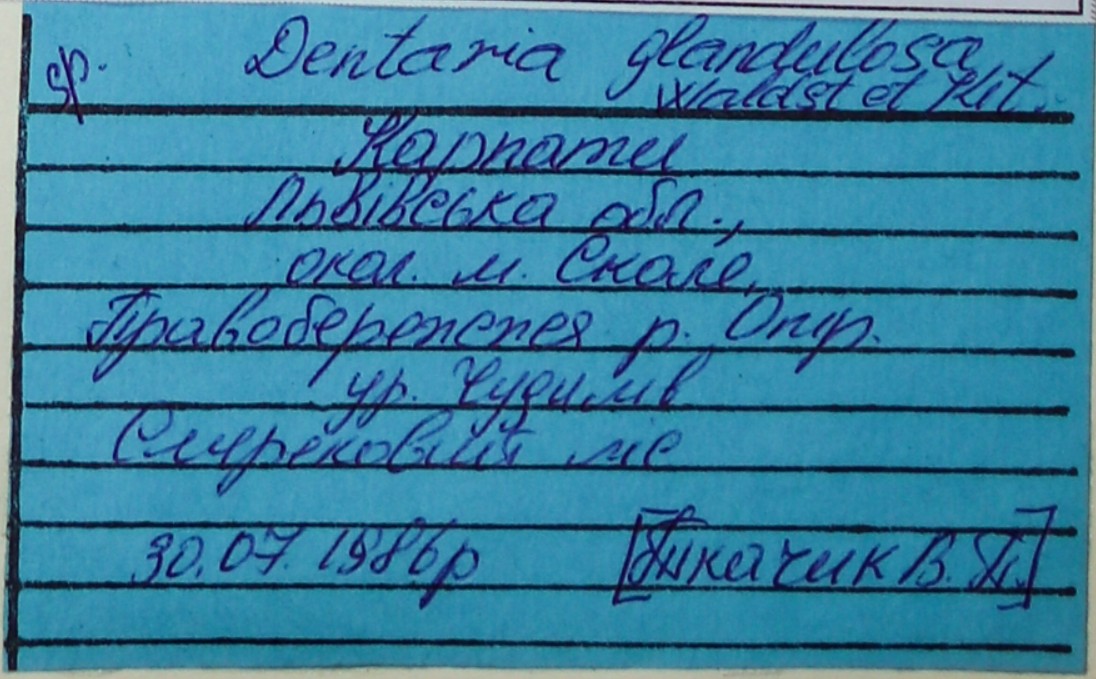 sp. Dentaria glandullosa
Waldst et Kit.
Карпати
Львівська обл.,
окол. м. Сколе,
Правобережжя р. Опір.
ур.
Смерековий ліс
30.07.1986р [Ткачик В. П.]